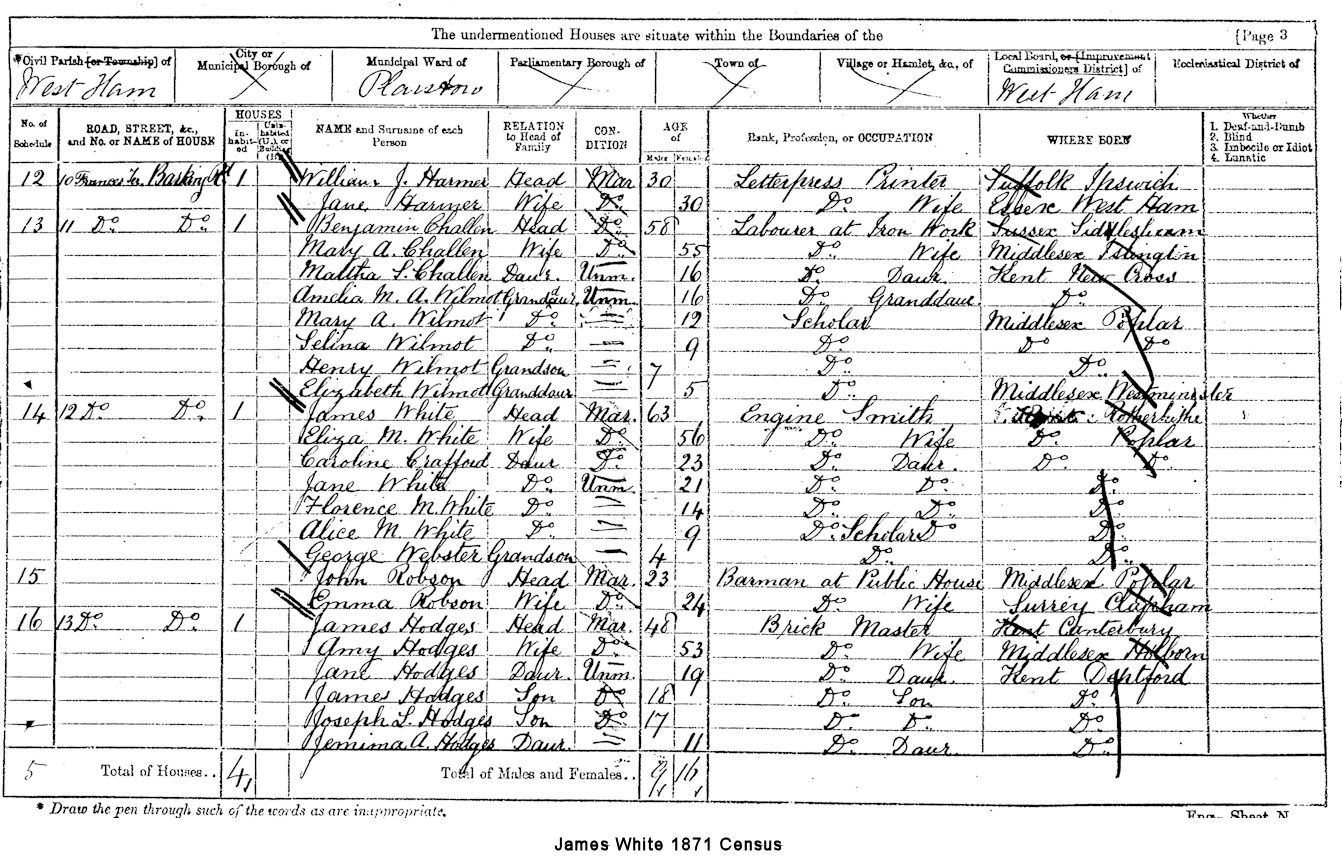 The undermentioned Houses are situate within the Boundaries of the [Page 3
*Civil Parish [or Township] of City or Municipal Borough of Municipal Ward of Parliamentary Borough of Town of Village or Hamlet, &c., of Local Board, or [Improvement Commissioners District] of Ecclesiastical District of
West Ham Plaistow West Ham
No. of Schedule ROAD, STREET, &c., and No. or NAME of HOUSE HOUSES In-habit-ed Unin-habited (U.) or Building (B.) NAME and Surname of each Person RELATION to Head of Family CON-DITION AGE of Males Females Rank, Profession, or OCCUPATION WHERE BORN Whether 1. Deaf-and-Dumb 2. Blind 3. Imbecile or Idiot 4. Lunatic
12 10 Frances Barking Rd 1 William J. Harmer Head Mar 30 Letterpress Printer Suffolk Ipswich
Jane Harmer Wife Do 30 Do Wife Essex West Ham
13 11 Do Do 1 Benjamin Challen Head Do 58 Labourer at Iron Work Sussex Sidlesham
Mary A. Challen Wife Do 55 Do Wife Middlesex Islington
Maltha S. Challen Daur. Unm. 16 Do Daur. Kent New Cross
Amelia M. A. Wilmot Grandaur. Unm. 16 Do Granddaur. Do
Mary A. Wilmot Do 12 Scholar Middlesex Poplar
Selina Wilmot Do 9 Do Do Do
Henry Wilmot Grandson 7 Do Do
Elizabeth Wilmot Granddaur 5 Do Middlesex Westminster
14 12 Do Do 1 James White Head Mar. 63 Engine Smith Rotherhithe
Eliza M. White Wife Do 56 Do Wife Do Poplar
Caroline Crafford Daur Do 23 Do Daur. Do Do
Jane White Do Unm. 21 Do Do Do
Florence M. White Do 14 Do Do Do
Alice M. White Do 9 Do Scholar Do Do
George Webster Grandson 4 Do Do
15 John Robson Head Mar. 23 Barman at Public House Middlesex Poplar
Emma Robson Wife Do 24 Do Wife Surrey Clapham
16 13 Do Do 1 James Hodges Head Mar. 48 Brick Master Kent Canterbury
Amy Hodges Wife Do 53 Do Wife Middlesex Holborn
Jane Hodges Daur. Unm. 19 Do Daur. Kent Deptford
James Hodges Son Do 18 Do Son Do
Joseph L. Hodges Son Do 17 Do Do Do
Jemima A. Hodges Daur. 11 Do Daur. Do
5 Total of Houses.. 4 Total of Males and Females.. 9 16
* Draw the pen through such of the words as are inappropriate.
Eng.—Sheet N.
James White 1871 Census